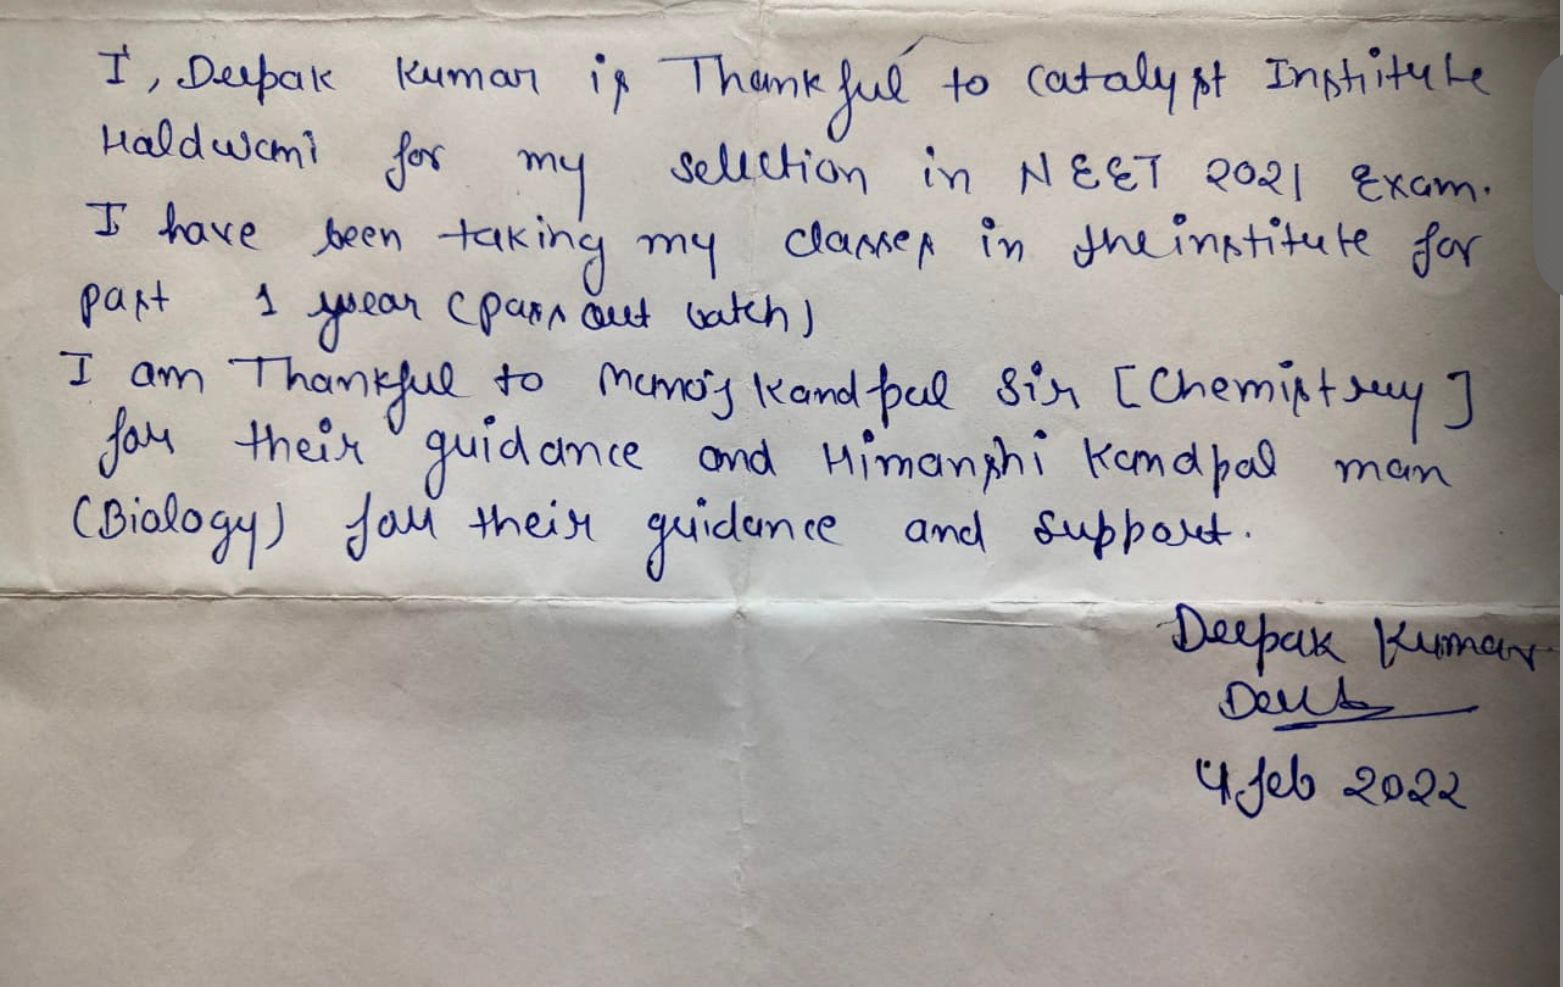 I, Deepak Kumar is Thankful to Catalyst Institute
Haldwani for my selection in NEET 2021 Exam.
I have been taking my classes in the institute for
past 1 year (pass out batch)
I am Thankful to Manoj Kandpal Sir [Chemistry]
for their guidance and Himanshi Kandpal mam
(Biology) for their guidance and support.
Deepak Kumar
4 feb 2022